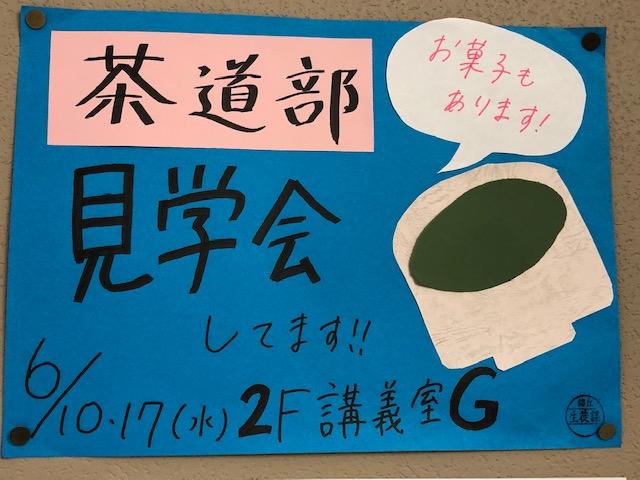 茶道部
お菓子も
あります!
見学会
してます!!
6/10・17(水) 2F 講義室G